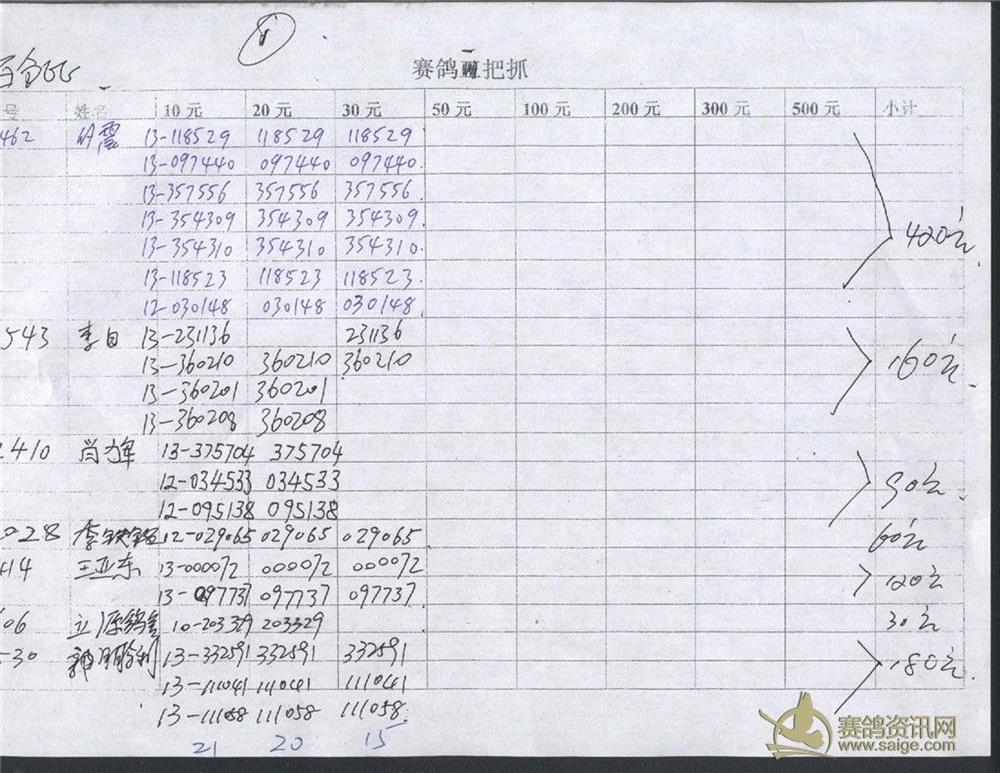 1
赛鸽 把抓
号 姓名 10元 20元 30元 50元 100元 200元 300元 500元 小计
462 震 13-118529 118529 118529
13-097440 097440 097440
13-357556 357556 357556
13-354309 354309 354309
13-354310 354310 354310
13-118523 118523 118523
12-030148 030148 030148
420元
543 李 13-231136 231136
13-360210 360210 360210
13-360201 360201
13-360208 360208
160元
2410 肖 13-375704 375704
12-034533 034533
12-095138 095138
90元
028 李 12-029065 029065 029065 60元
414 王亚东 13-000072 000072 000072
13-097737 097737 097737
120元
06 立源鸽舍 10-203329 203329 30元
30 郭 利 13-332591 332591 332591
13-111041 111041 111041
13-111058 111058 111058
180元
21 20 15
赛鸽资讯网
www.saige.com